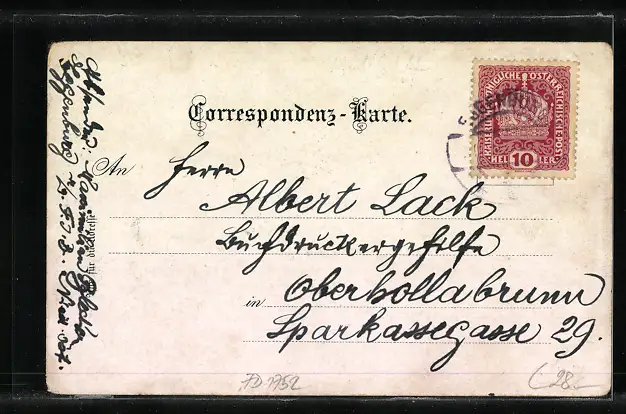 Correspondenz-Karte.
KAISERLICHE KÖNIGLICHE ÖSTERREICHISCHE POST
HELLER 10 HELLER
An Herrn
Albert Lack
Buchdruckergehilfe
in Oberhollabrunn
Sparkassegasse 29.
Absender:
für die Adresse
Eggenburg
FD.1752
28.-